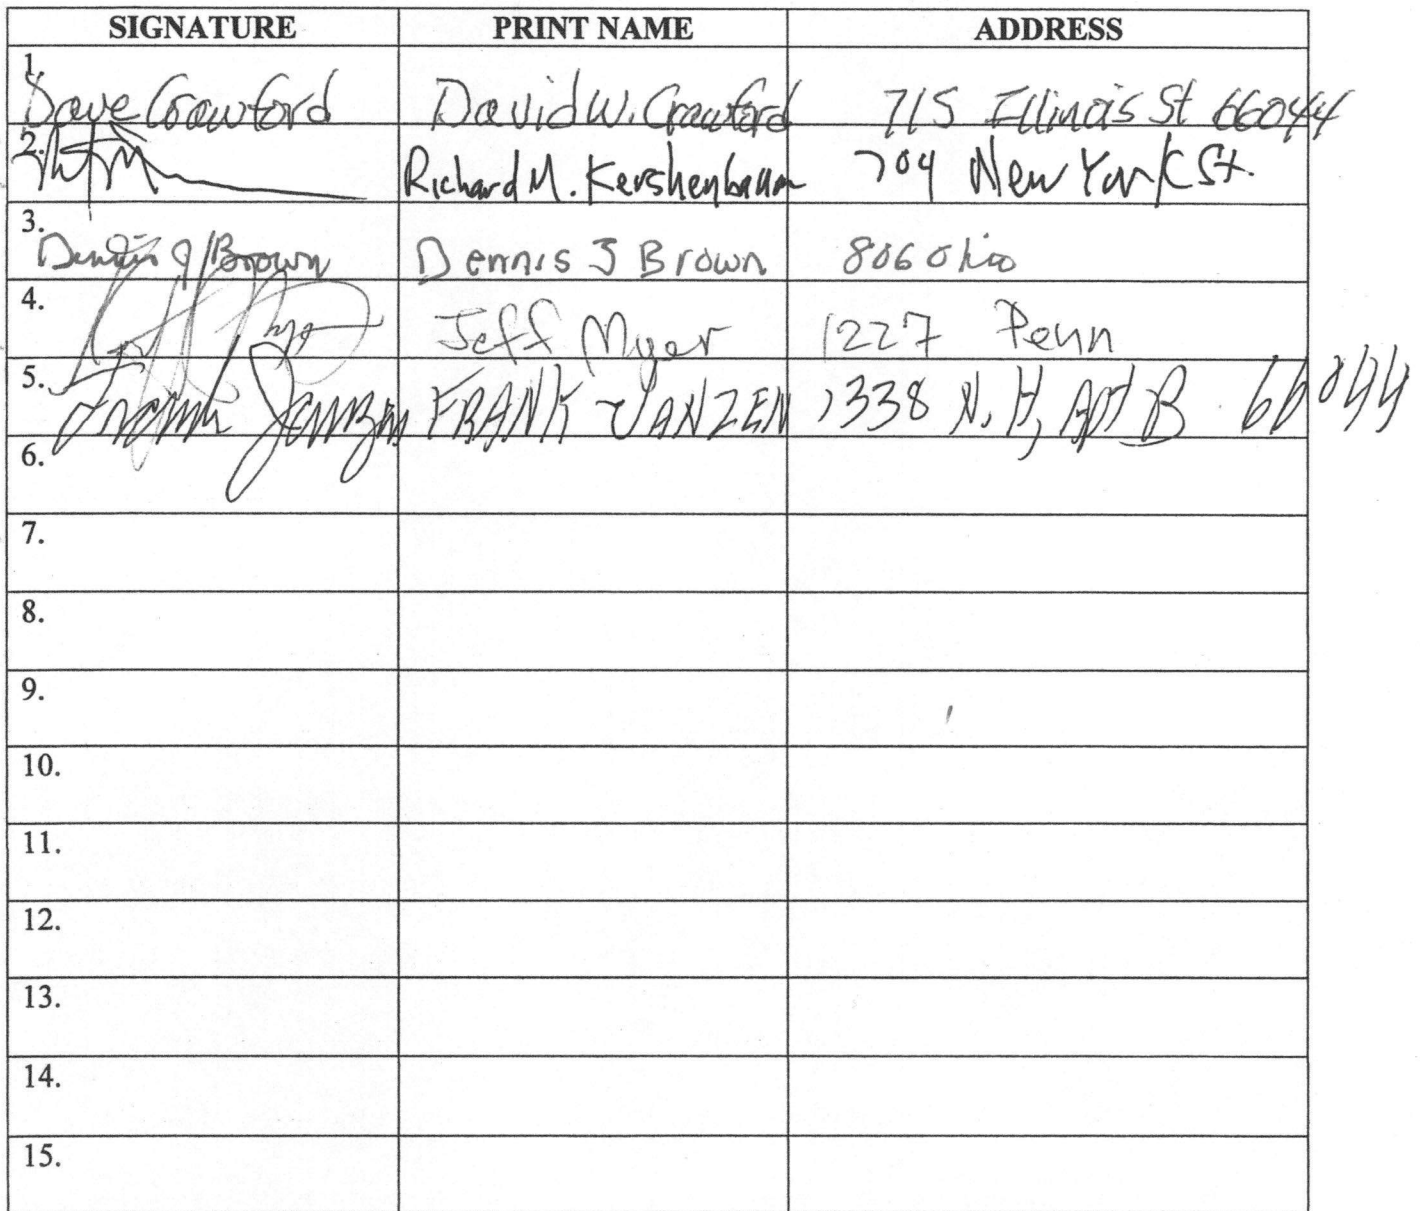 SIGNATURE PRINT NAME ADDRESS
1. Dave Crawford David W. Crawford 715 Illinois St 66044
2. Richard M. Kershenbaum 704 New York St.
3. Dennis J Brown Dennis J Brown 806 Ohio
4. Jeff Myer 1227 Penn
5. Frank Janzen FRANK JANZEN 1338 N. H, Apt B 66044
6.
7.
8.
9.
10.
11.
12.
13.
14.
15.